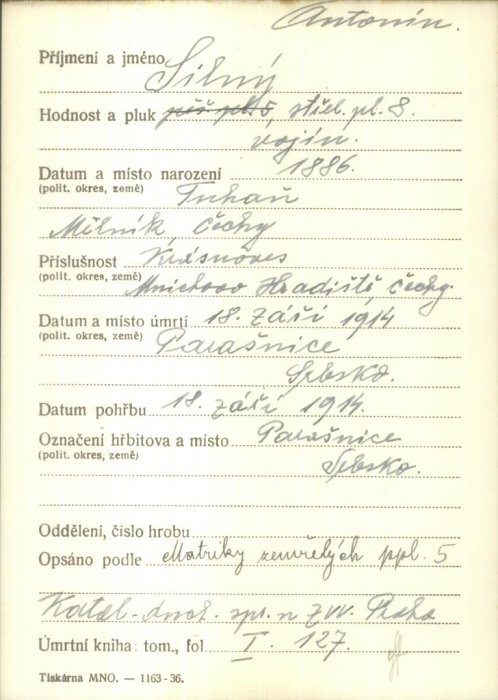 Antonín.
Příjmení a jméno Silný
Hodnost a pluk pěš. pl. 5, střel. pl. 8.
vojín.
Datum a místo narození 1886.
(polit. okres, země) Tuhaň
Mělník, Čechy
Příslušnost Krásnoves
(polit. okres, země) Mnichovo Hradiště Čechy.
Datum a místo úmrtí 18. září 1914
(polit. okres, země) Parašnice
Srbsko.
Datum pohřbu 18. září 1914.
Označení hřbitova a místo Parašnice
(polit. okres, země) Srbsko.
Oddělení, číslo hrobu
Opsáno podle Matriky zemřelých ppl. 5
Katol. duch. spr. n ZVV. Praha
Úmrtní kniha: tom., fol I. 127.
Tiskárna MNO. — 1163-36.